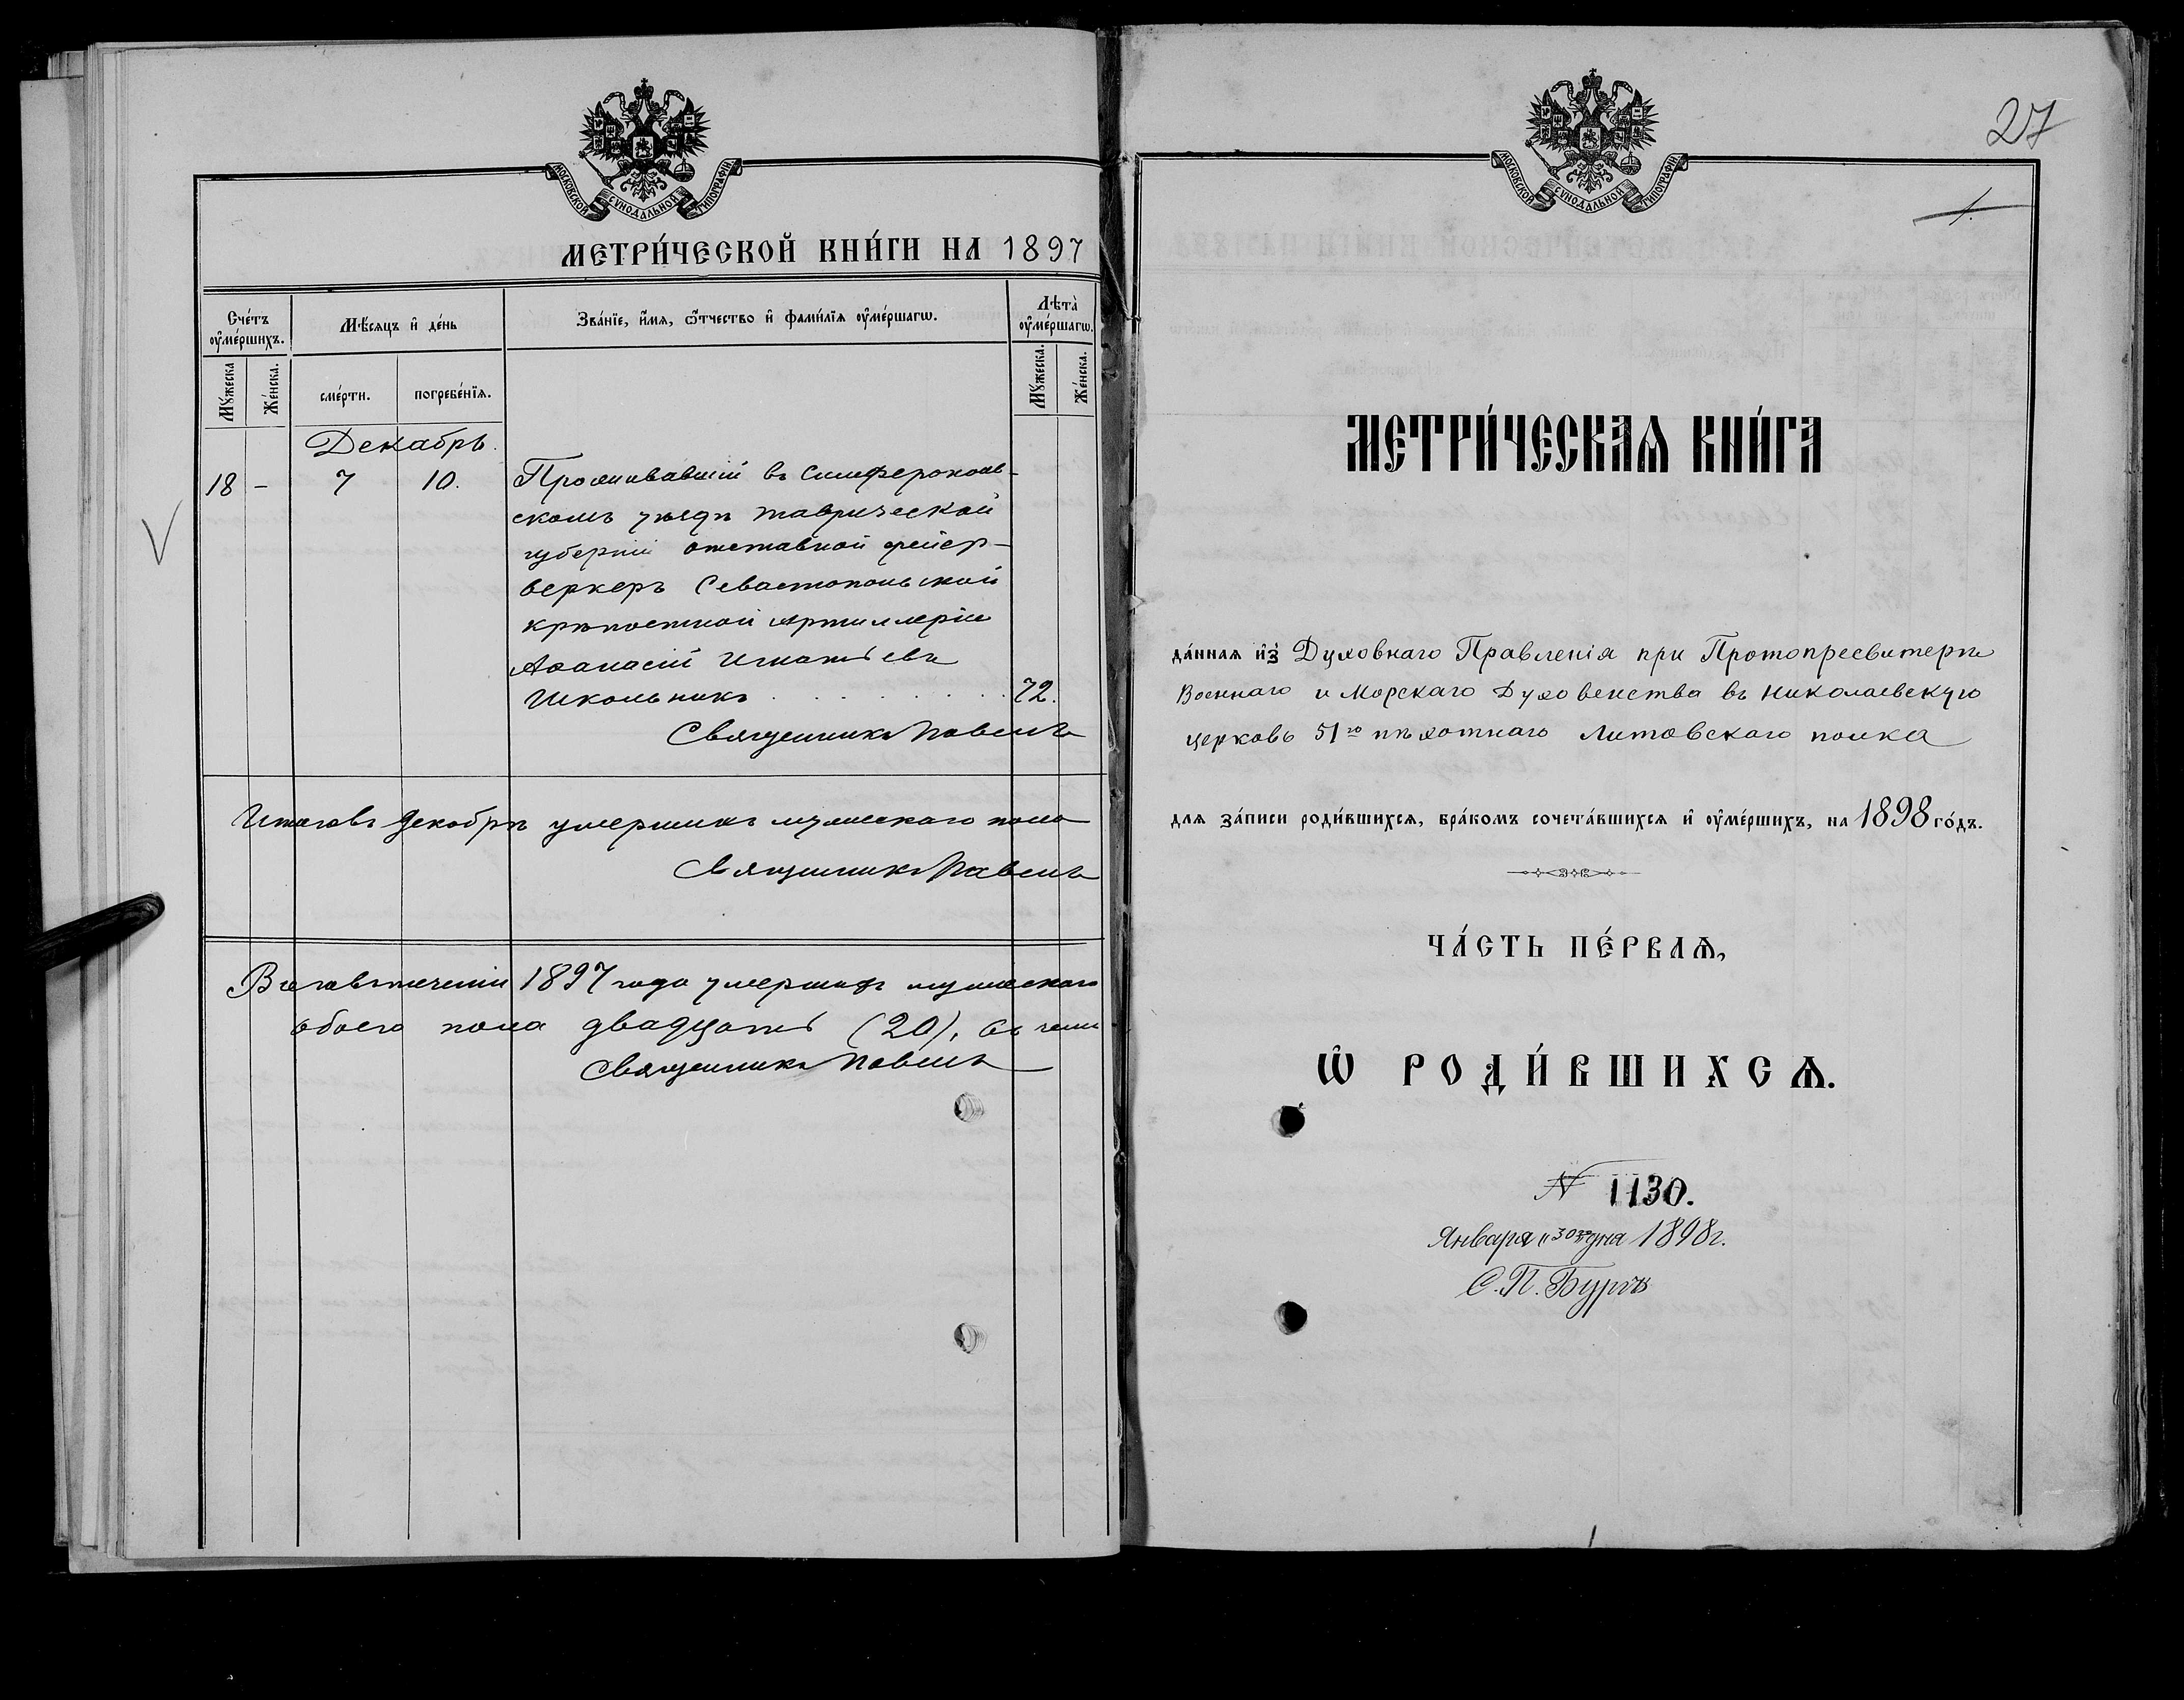 МОСКОВСКОЙ СѴНОДАЛЬНОЙ ТИПОГРАФІИ
МЕТРИ́ЧЕСКОЙ КНИ́ГИ НА 1897
Сче́тъ ᲂу҆ме́ршихъ.
Мѣ́сяцъ и҆ де́нь
Зва́нїе, и҆́мя, ѻ҆́тчество и҆ фами́лїя ᲂу҆ме́ршагѡ.
Лѣта̀ ᲂу҆ме́ршагѡ.
Мꙋ́жеска
Же́нска.
сме́рти.
погребе́нїя.
Мꙋ́жеска.
Же́нска.
Декабрь.
18 – 7 10. Проживавшій въ Симферополь-
скомъ уѣздѣ Таврической
губерніи отставной фейер-
веркеръ Севастопольской
крѣпостной артиллеріи
Аѳанасій Игнатьевъ
Школьникъ . . . . . . 72.
Священникъ Павелъ
Итого въ декабрѣ умершихъ мужескаго пола
Священникъ Павелъ
Всего въ теченіи 1897 года умершихъ мужескаго
обоего пола двадцать (20), въ чемъ
Священникъ Павелъ
27
МОСКОВСКОЙ СѴНОДАЛЬНОЙ ТИПОГРАФІИ
1.
МЕТРИ́ЧЕСКАѦ КНИ́ГА
да́нная и҆з̾ Духовнаго Правленія при Протопресвитерѣ
Военнаго и Морскаго Духовенства въ Николаевскую
церковь 51го пѣхотнаго Литовскаго полка
для за́писи роди́вшихся, бра́комъ сочета́вшихся и҆ ᲂу҆ме́ршихъ, на 1898 го́дъ.
ЧА́СТЬ ПЕ́РВАѦ,
Ѡ҆ РОДИ́ВШИХСѦ.
№ 1130.
Января "30го" дня 1898 г.
С. П. Бургъ